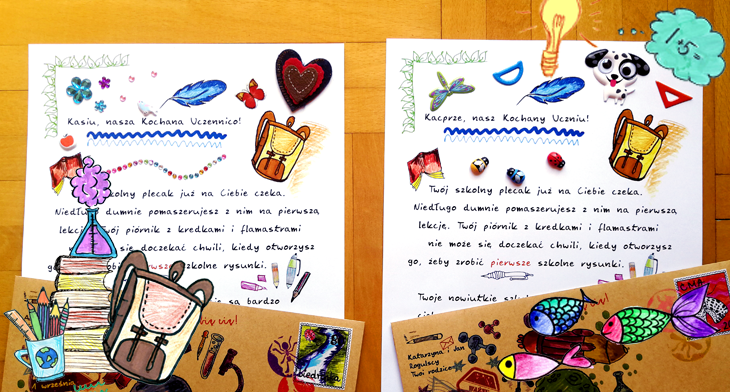 Kasiu, nasza Kochana Uczennico!
szkolny plecak już na Ciebie czeka.
Niedługo dumnie pomaszerujesz z nim na pierwszą
lekcję. Twój piórnik z kredkami i flamastrami
się doczekać chwili, kiedy otworzysz
go, żeby zrobić pierwsze szkolne rysunki.
są bardzo
1 września
1+5=
Kacprze, nasz Kochany Uczniu!
Twój szkolny plecak już na Ciebie czeka.
Niedługo dumnie pomaszerujesz z nim na pierwszą
lekcję. Twój piórnik z kredkami i flamastrami
nie może się doczekać chwili, kiedy otworzysz
go, żeby zrobić pierwsze szkolne rysunki.
Twoje nowiutkie
Katarzyna i Jan
Rogulscy
Twoi rodzice